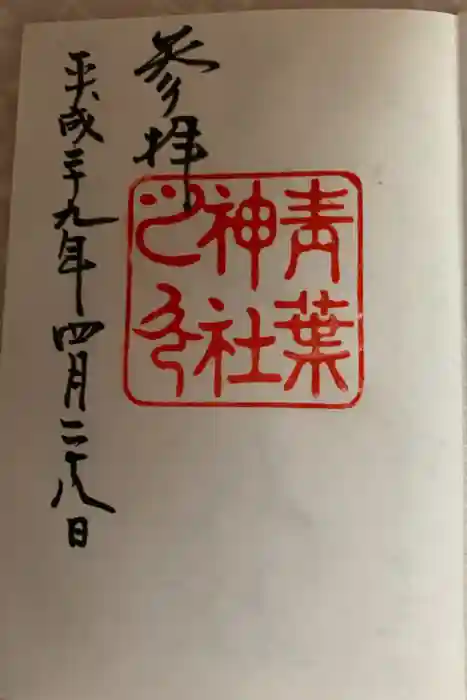 参拝
青葉
神社
之印
平成二十九年四月二十八日